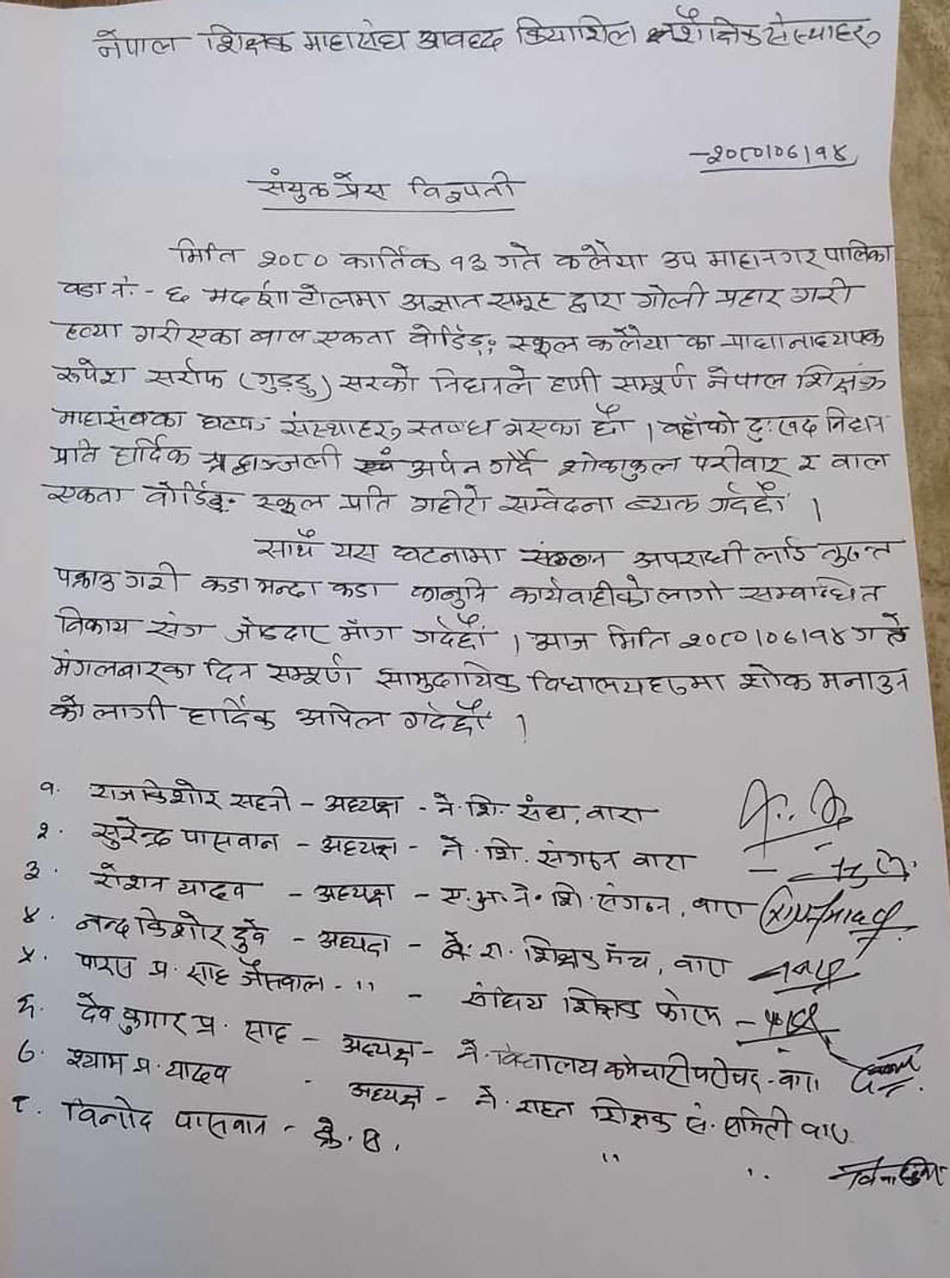 नेपाल शिक्षक माहासंघ आवद्द क्रियाशिल शैक्षिक संस्थाहरु
-२०८०।०७।१४
संयुक्त प्रेस विज्ञप्ती
मिति २०८० कार्तिक १३ गते कलैया उप माहानगर पालिका
वडा नं.- ६ मदर्शा टोलमा अज्ञात समूह द्वारा गोली प्रहार गरी
हत्या गरीएका बाल एकता वोर्डिङ्ग स्कूल कलैया का प्राधानाध्यपक
रुपेश सर्राफ (गुड्डु) सरको निधनले हामी सम्पूर्ण नेपाल शिक्षक
माहासंघका घटक संस्थाहरु स्तब्ध भएका छौं । वहाँको दुःखद निधन
प्रति हार्दिक श्रद्धाञ्जली अर्पन गर्दै शोकाकुल परीवार र वाल
एकता वोर्डिङ्ग स्कूल प्रति गहीरो सम्वेदना ब्यक्त गर्दछौं ।
साथै यस घटनामा संलग्न अपराधी लाई तुरुन्त
पक्राउ गरी कडा भन्दा कडा कानुनि कार्यवाहीको लागी सम्वन्धित
निकाय संग जोडदार माँग गर्दछौं । आज मिति २०८०।०७।१४ गते
मंगलबारका दिन सम्पूर्ण सामुदायिक विद्यालयहरुमा शोक मनाउन
को लागी हार्दिक अपिल गर्दछौं ।
१. राजकिशोर सहनी - अध्यक्ष - ने. शि. संघ, वारा
२. सुरेन्द्र पासवान - अध्यक्ष - ने. शि. संगठन वारा
३. रोशन यादव - अध्यक्ष - ए.अ.ने. शि. संगठन, वारा
४. नन्द किशोर दुवे - अध्यक्ष - ने. रा. शिक्षक मंच, वारा
५. पारस प्र. साह जैसवाल - " - संघिय शिक्षक फोरम
६. देव कुमार प्र. साह - अध्यक्ष - ने. विद्यालय कर्मचारी परीषद - वारा
७. श्याम प्र. यादव - अध्यक्ष - ने. राहत शिक्षक सं. समिती वारा
८. विनोद पासवान - " "